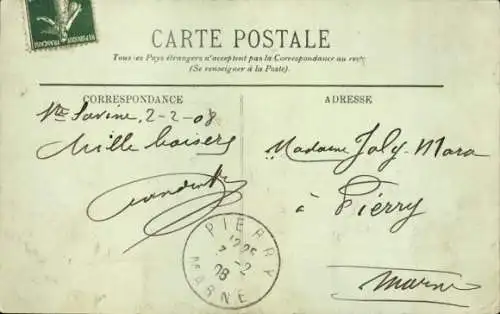 REPUBLIQUE FRANÇAISE
CARTE POSTALE
Tous les Pays étrangers n'acceptent pas la Correspondance au recto
(Se renseigner à la Poste)
CORRESPONDANCE
ADRESSE
Ste Savine, 2-2-08
Mille baisers
Madame Joly-Mara
à Pierry
Marne
PIERRY
-2
08
MARNE